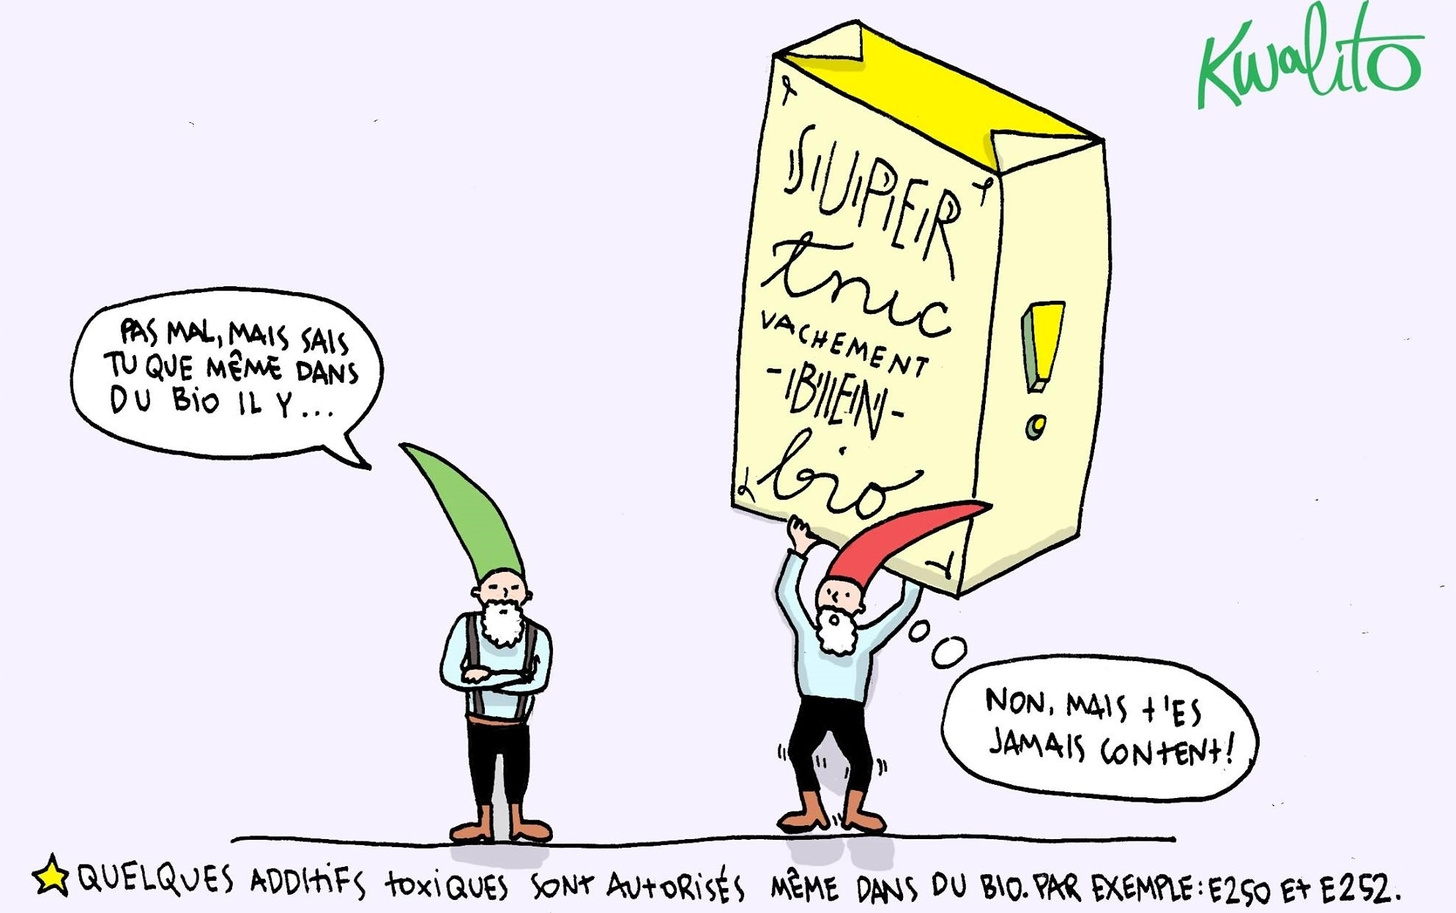 Kwalito
SUPER
truc
VACHEMENT
-BIEN-
bio
!
PAS MAL, MAIS SAIS
TU QUE MÊME DANS
DU BiO IL Y...
NON, MAIS t'ES
JAMAIS CONTENT!
QUELQUES ADDITiFS toxiQUES SONT AUtORiSÉS MÊME DANS DU BIO. PAR EXEMPLE: E250 Et E252.